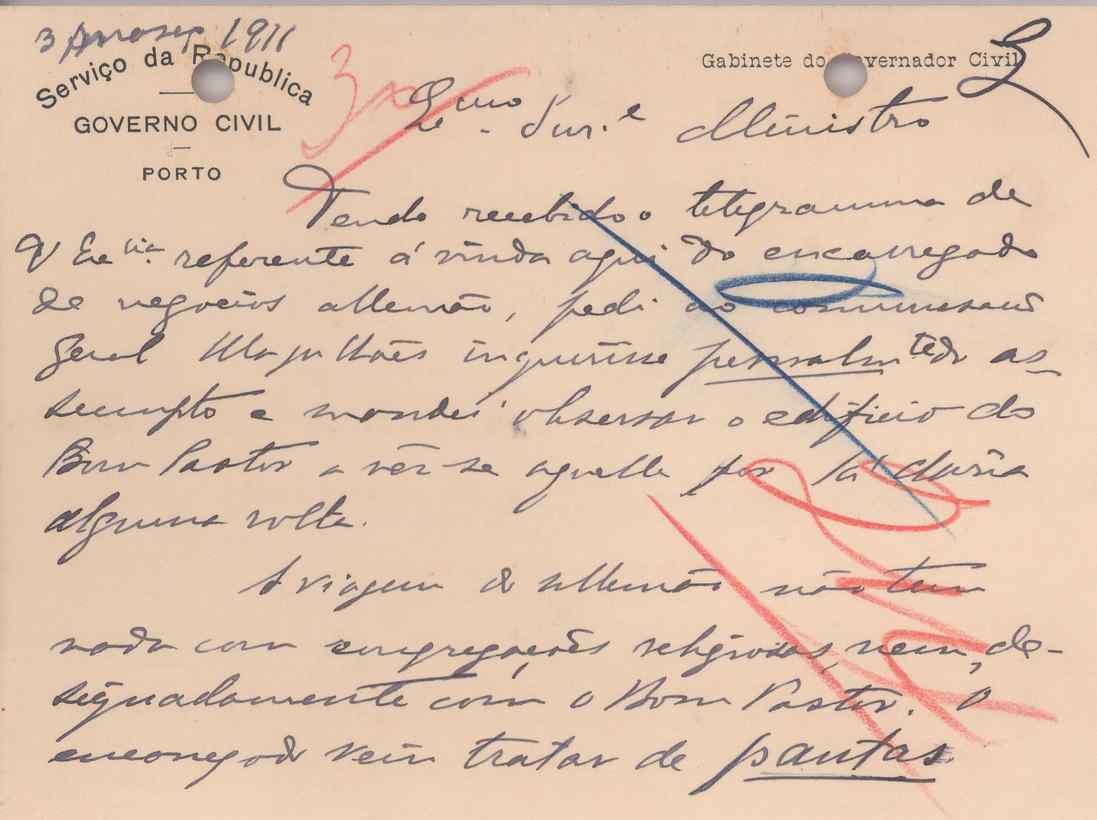 3 1911
Serviço da Republica
GOVERNO CIVIL
PORTO
Gabinete do Governador Civil
Exmo Snr. Ministro
Tendo recebido o telegramma de
V Excia. referente á vinda aqui do encarregado
de negocios allemão, pedi ao commissario
Geral Magalhães inquirisse pessoalmte do as-
sumpto e mandei observar o edificio do
Bom Pastor a vêr se aquelle por lá daria
alguma volta.
A viagem do allemão não tem
nada com congregações religiosas, nem, de-
signadamente com o Bom Pastor. O
encarregado vem tratar de pautas